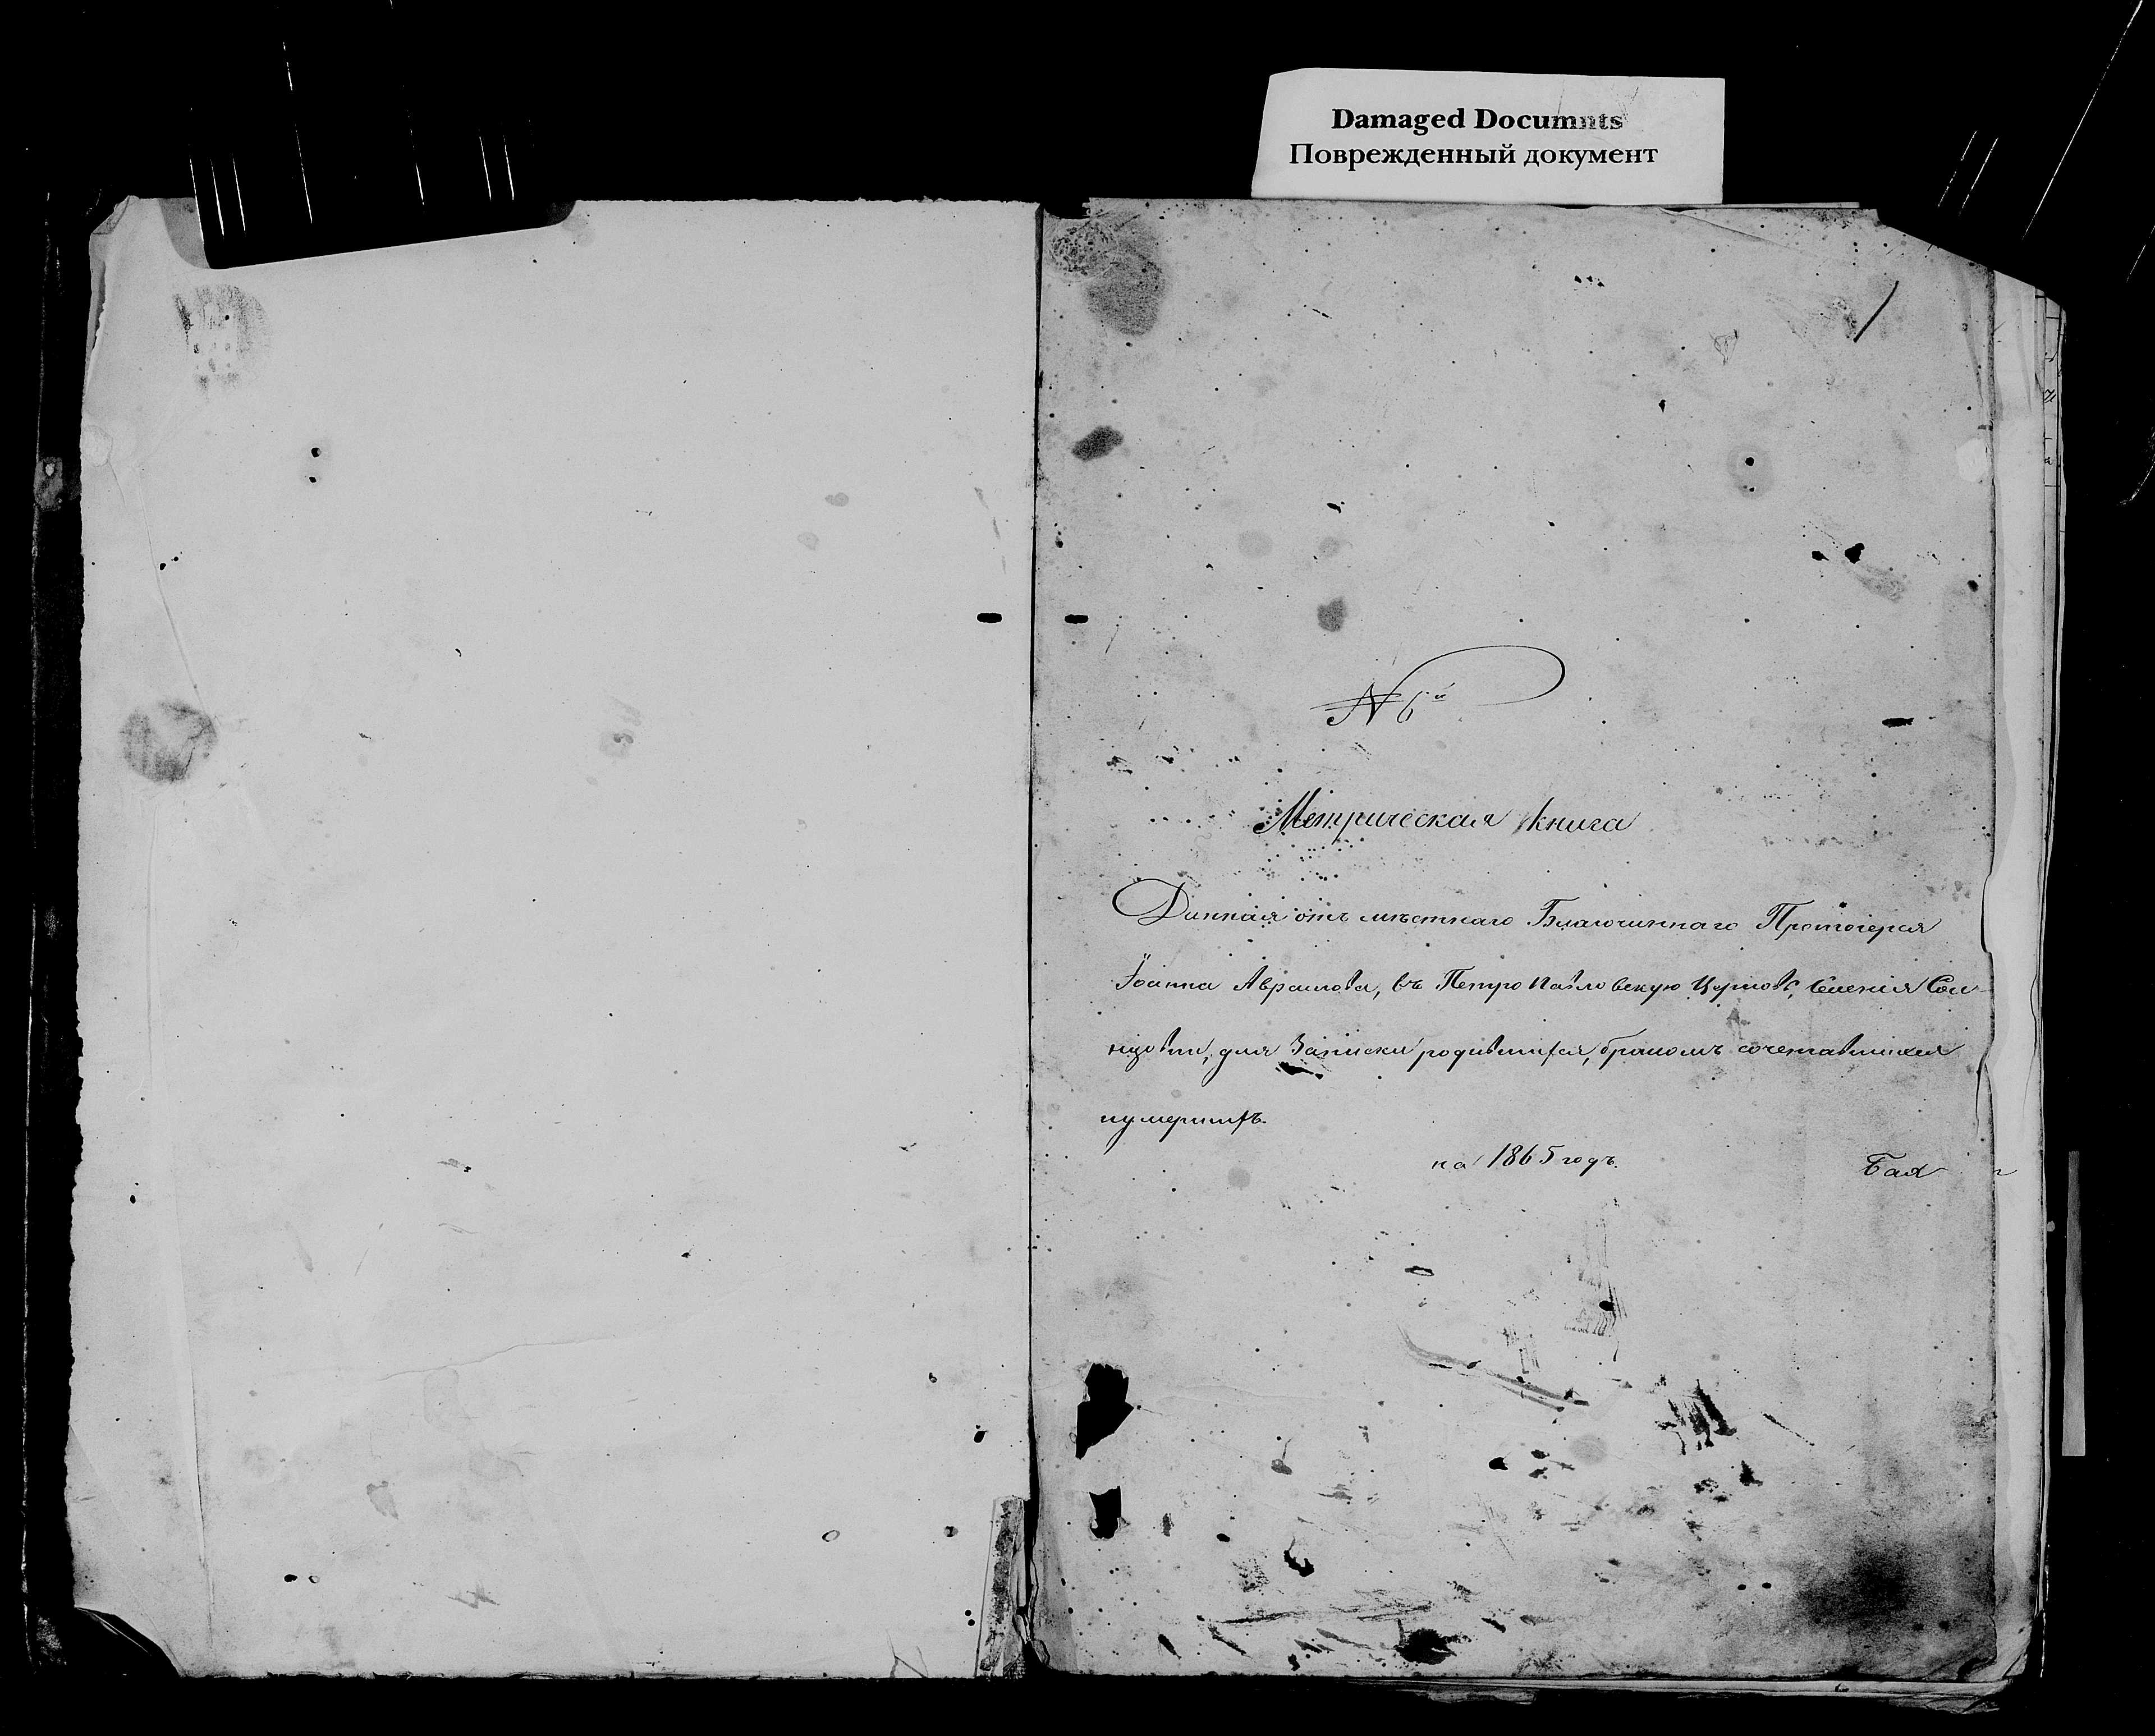 Damaged Documnts
Поврежденный документ
1
№ 6й
Метрическая книга
Данная отъ мѣстнаго Благочиннаго Протоіерея
Іоанна Аврамова, въ Петро Павловскую Церковь, Селенія
для Записки родившихся, бракомъ сочетавшихся
и умершихъ.
на 1865 годъ.